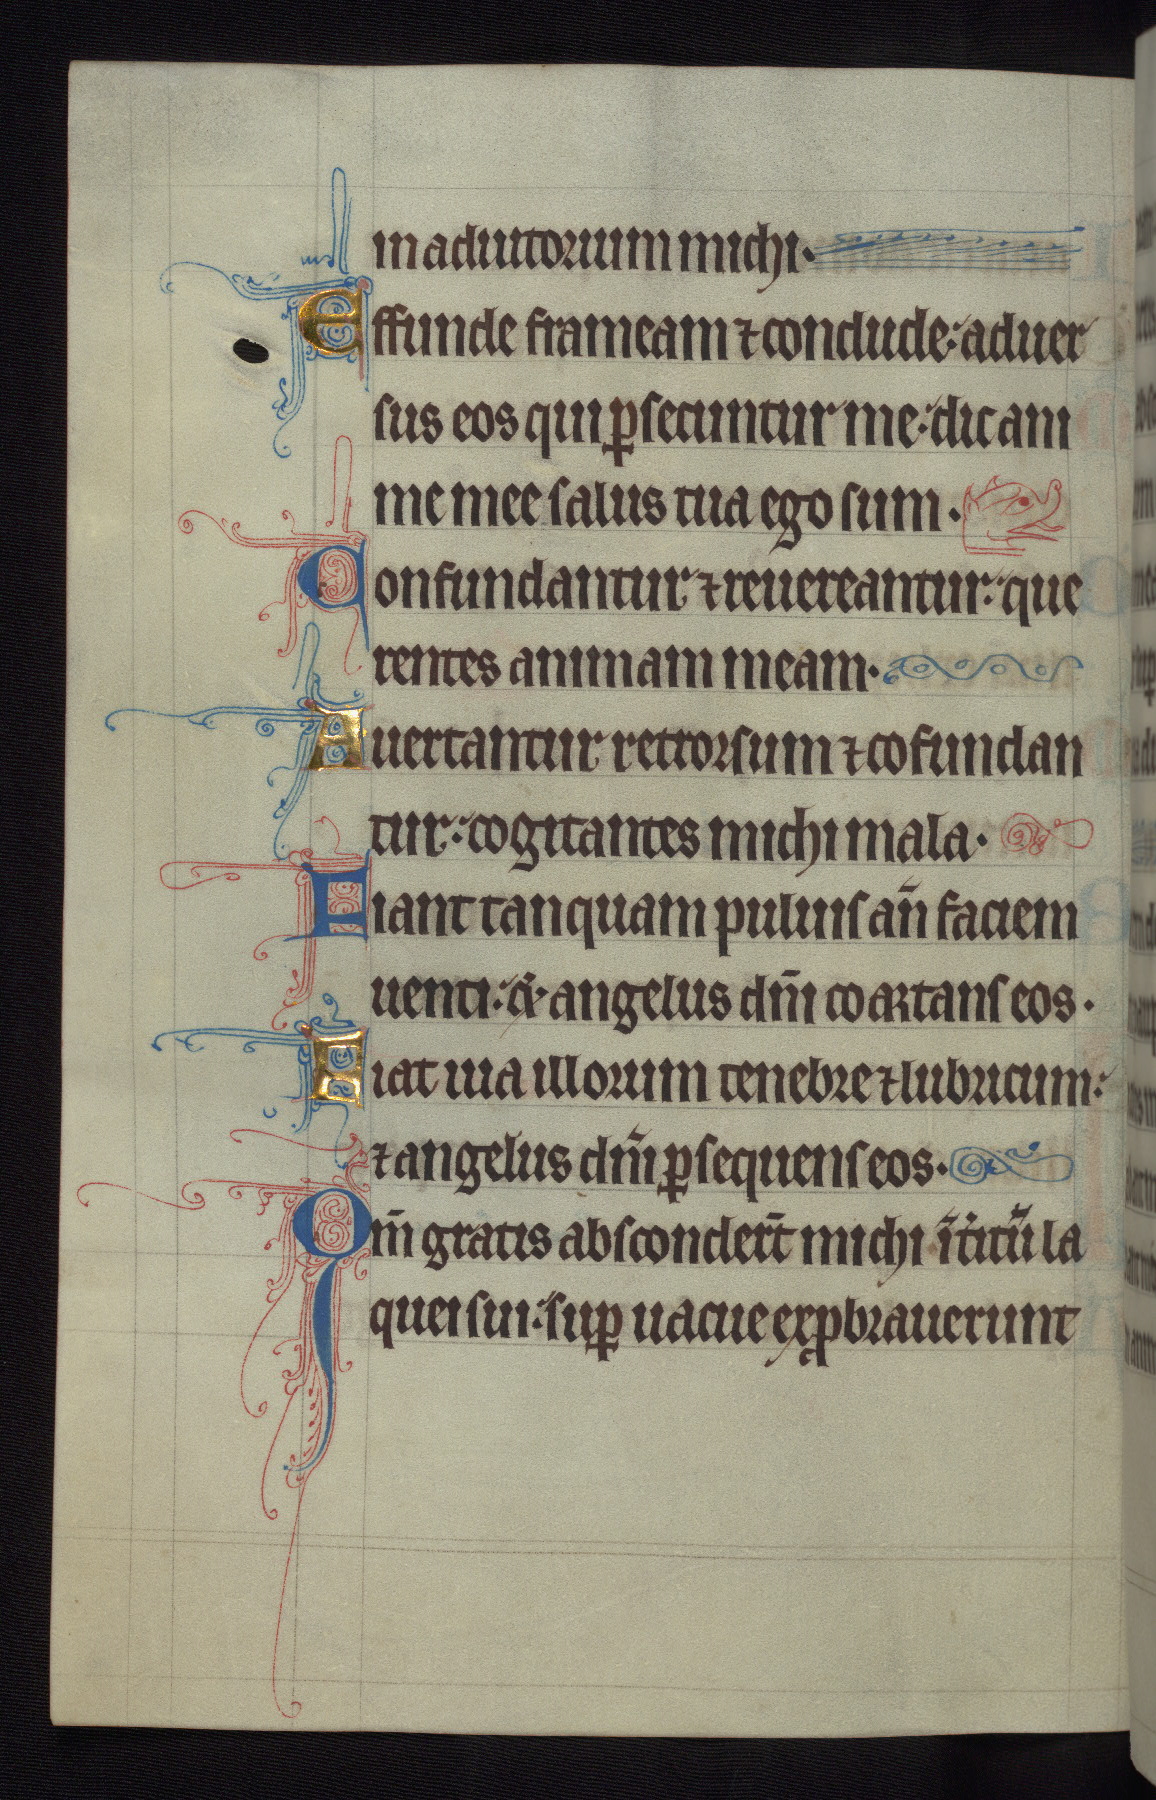 in adiutorium michi.
Effunde frameam ⁊ conclude: aduer
sus eos qui ꝑsecuntur me: dic ani
me mee salus tua ego sum.
Confundantur ⁊ reuereantur: que
rentes animam meam.
Auertantur retrorsum ⁊ cofundan
tur: cogitantes michi mala.
Fiant tanquam puluis an̄ faciem
uenti: ⁊ angelus dn̄i coartans eos.
Fiat uia illorum tenebre ⁊ lubricum:
⁊ angelus dn̄i ꝑsequens eos.
Qm̄ gratis absconder̄t michi īt̉itū la
quei sui: suꝑ uacue exꝓbrauerunt